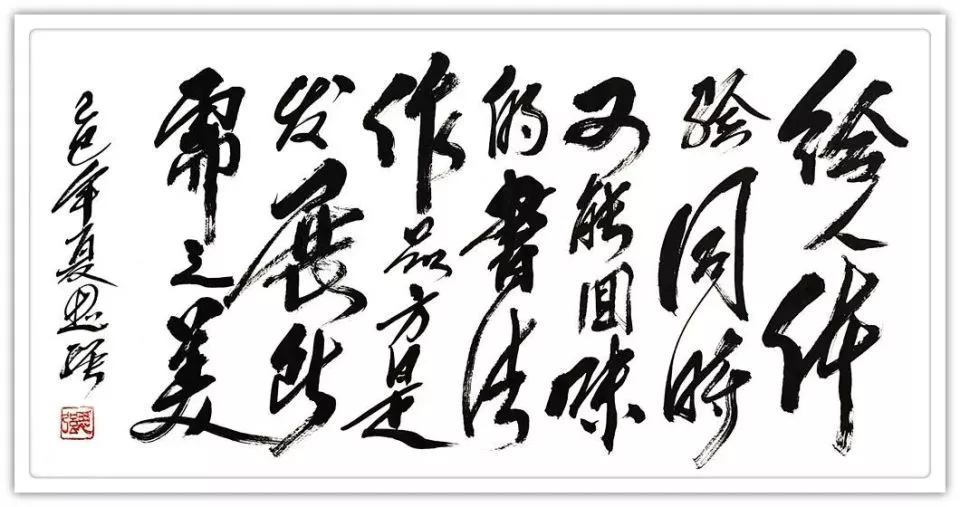 给人体
验同時
又能回味
的書法
作品方是
发展所
需之美
乙巳年夏思强